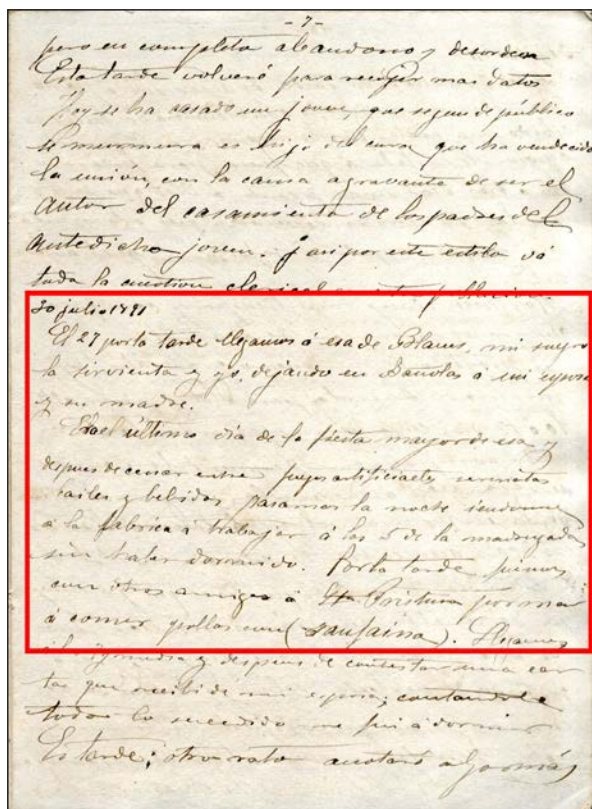 - 7 -
pero en completo abandono y desorden
Esta tarde volveré para recojer mas datos
Hoy se ha casado un joven, que segun de público
se murmura es hijo del cura que ha vendecido
la unión, con la causa agravante de ser el
autor del casamiento de los padres del
antedicho joven. Y asi por este estilo vá
toda la cuestion clerical
30 julio 1891
El 27 por la tarde llegamos á esa de Blanes, mi suegro
la sirvienta y yo, dejando en Bañolas á mi esposa
y su madre.
Era el último dia de la fiesta mayor de esa y
despues de cenar entre fuegos artificiales serenatas
bailes y bebidas pasamos la noche
á la fabrica á trabajar á las 5 de la madrugada
sin haber dormido. Por la tarde fuimos
con otros amigos á Sta Cristina por mar
á comer pollos con (sanfaina). Llegamos
y media y despues de contestar una car
ta que recibi de mi esposa; contandole
todo lo sucedido me fui á dormir
Es tarde; otro rato anotaré algo más